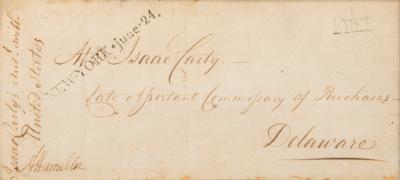 NEW-YORK june 24.
FREE
Mr. Isaac Carty—
Late Assistant Commissary of Purchases—
Delaware
Isaac Carty's with
United States
AHamilton